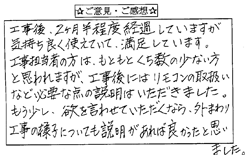 ★ご意見・ご感想★
工事後、2ヶ月半程度経過していますが
気持ち良く使えていて、満足しています。
工事担当者の方は、もともとくち数の少ない方
と思われますが、工事後にはリモコンの取扱い
など必要な点の説明はいただきました。
もう少し、欲を言わせていただくなら、外まわり
工事の様子についても説明があれば良かったと思い
ました。